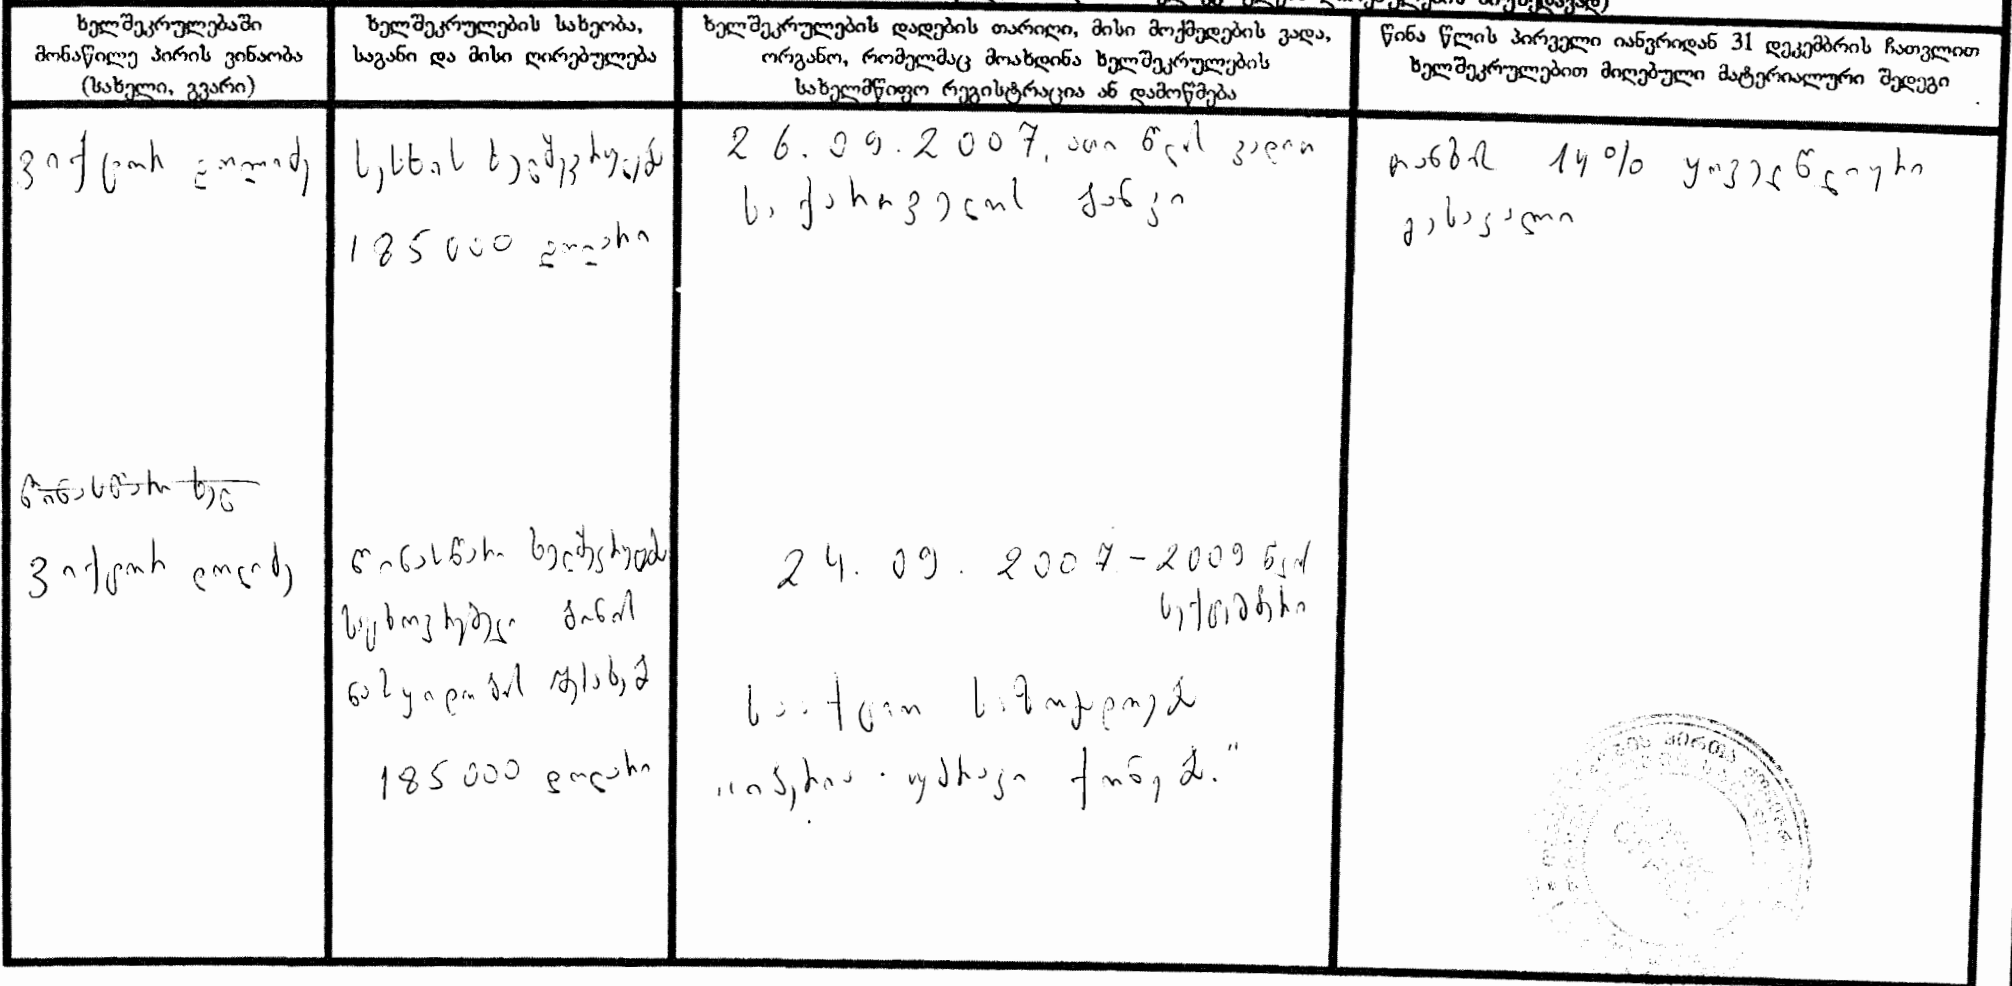 ხელშეკრულებაში
მონაწილე პირის ვინაობა
(სახელი, გვარი)
ხელშეკრულების სახეობა,
საგანი და მისი ღირებულება
ხელშეკრულების დადების თარიღი, მისი მოქმედების ვადა,
ორგანო, რომელმაც მოახდინა ხელშეკრულების
სახელმწიფო რეგისტრაცია ან დამოწმება
წინა წლის პირველი იანვრიდან 31 დეკემბრის ჩათვლით
ხელშეკრულებით მიღებული მატერიალური შედეგი
ვიქტორ დოლიძე
სესხის ხელშეკრულება
185000 დოლარი
26.09.2007, ათი წლის ვადით
საქართველოს ბანკი
თანხის 14% ყოველწლიური
გასავალი
წინასწარი ხელ
ვიქტორ დოლიძე
წინასწარი ხელშეკრულება
საცხოვრებელი ბინის
ნასყიდობის შესახებ
185000 დოლარი
24.09.2007-2009 წლის
სექტემბერი
სააქციო საზოგადოება
„იბერია უძრავი ქონება."